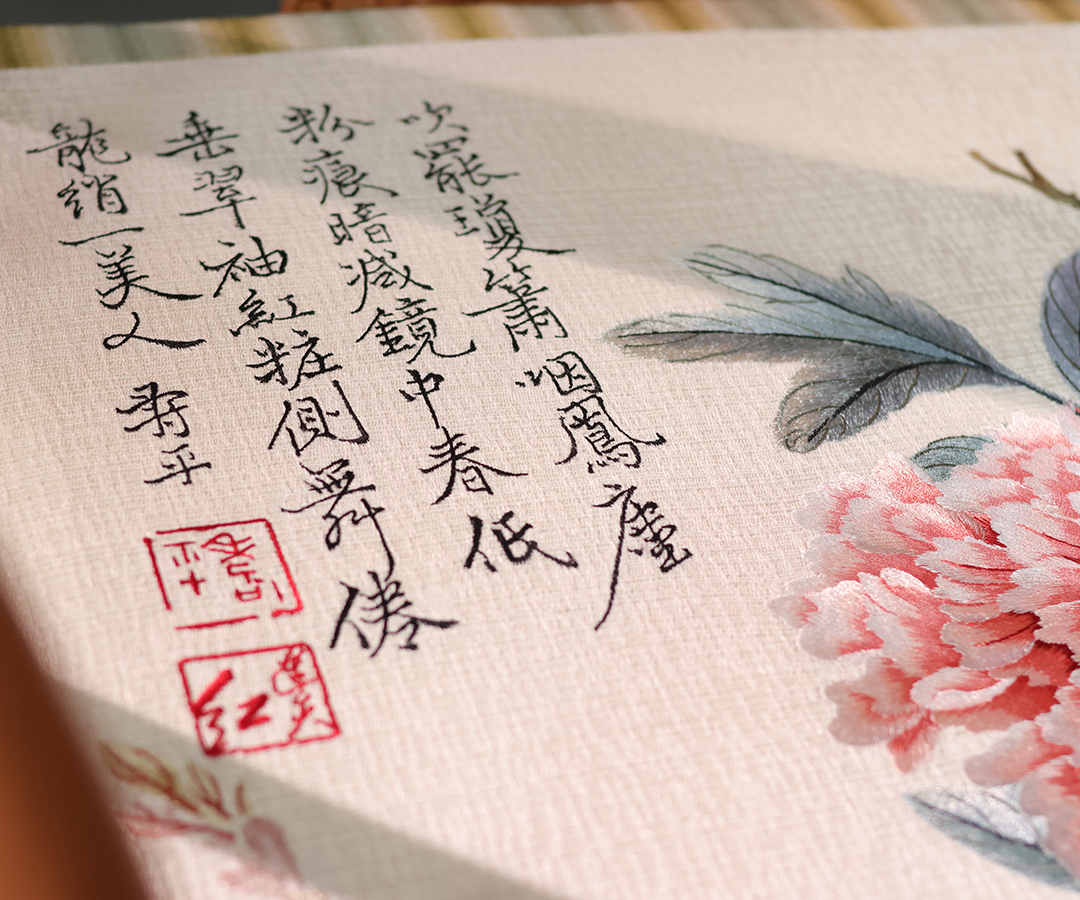 吹罷瓊簫咽鳳塵
粉痕暗減鏡中春低
垂翠袖紅粧側舞倦
龍綃一美人 壽平
紅